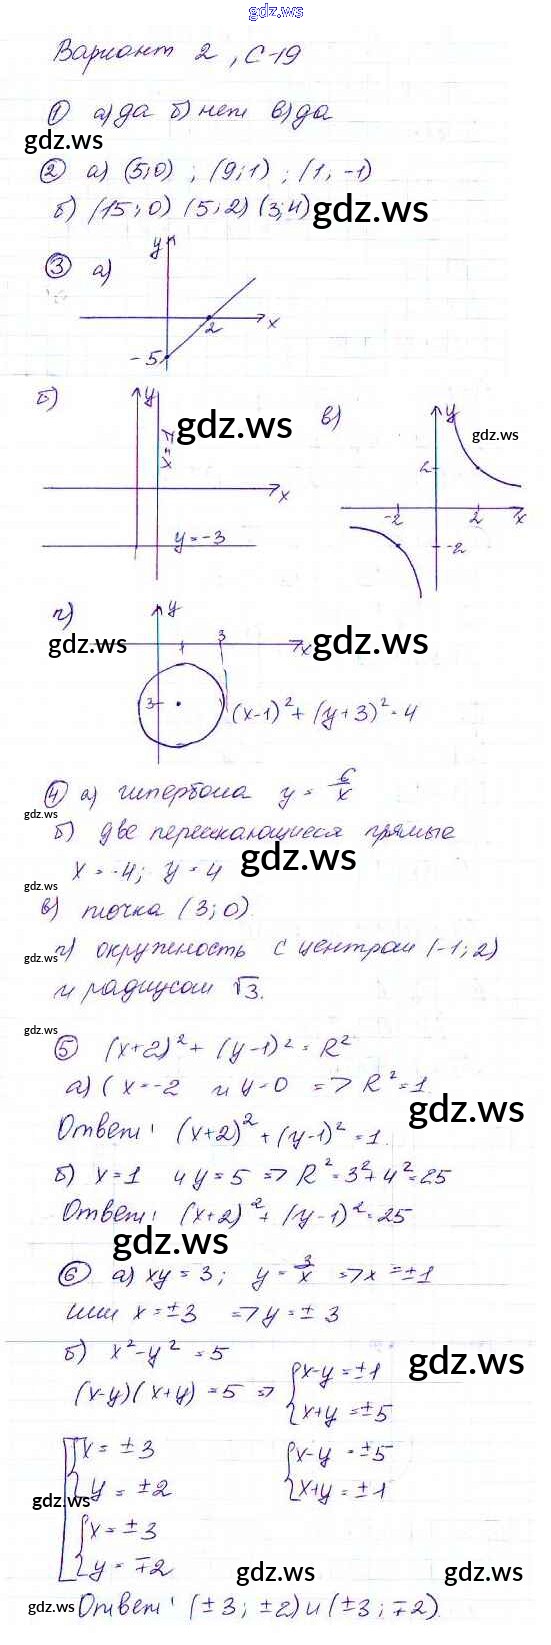 gdz.ws
Вариант 2, С-19
① а) да б) нет в) да
gdz.ws
② а) (5;0) ; (9;1) ; (1, -1)
б) (15;0) (5;2) (3;4)
gdz.ws
③ а)
y
2
x
-5
б)
y
x=1
gdz.ws
x
y=-3
в)
y
gdz.ws
2
-2
2
x
-2
г)
y
gdz.ws
3
x
gdz.ws
3
(x-1)² + (y+3)² = 4
④ а) гипербола y = 6/x
gdz.ws
б) две пересекающиеся прямые
gdz.ws
x = -4; y = 4
gdz.ws
в) точка (3;0)
г) окружность с центром (-1;2)
gdz.ws
и радиусом √3.
gdz.ws
⑤ (x+2)² + (y-1)² = R²
а) ( x=-2 и y=0 => R²=1.
gdz.ws
Ответ: (x+2)² + (y-1)² = 1.
б) x=1 и y=5 => R²=3²+4²=25
Ответ: (x+2)² + (y-1)² = 25
gdz.ws
⑥ а) xy=3; y=3/x => x=±1
или x=±3 => y=±3
б) x²-y²=5
gdz.ws
(x-y)(x+y)=5 =>
x-y=±1
x+y=±5
x=±3
y=±2
x-y=±5
x+y=±1
gdz.ws
x=±3
y=∓2
gdz.ws
gdz.ws
gdz.ws
Ответ: (±3; ±2) и (±3; ∓2).